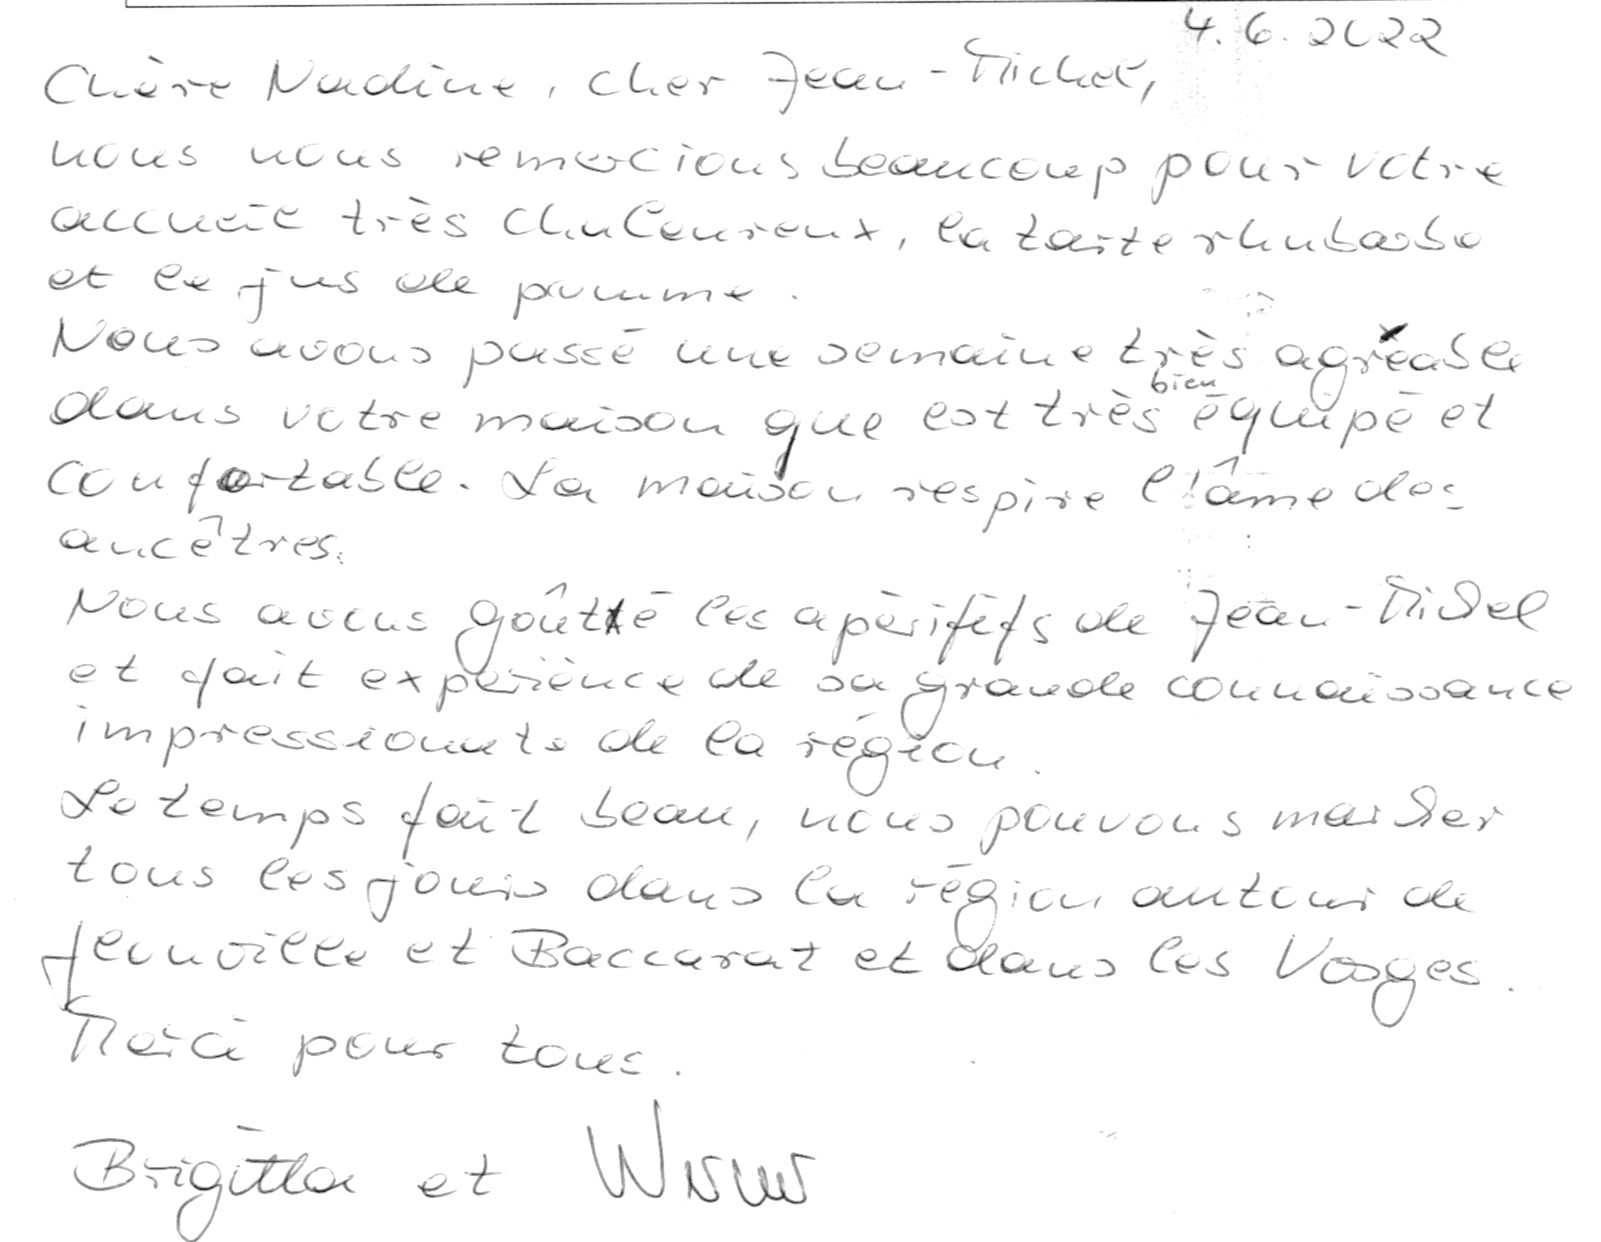 4. 6. 2022
Chère Nadine, cher Jean-Michel,
nous nous remercions beaucoup pour votre
accueil très chaleureux, la tarte rhubarbe
et le jus de pomme.
Nous avons passé une semaine très agréable
dans votre maison que est très bien équipé et
confortable. La maison respire l'âme des
ancêtres.
Nous avons goûté les apérififs de Jean-Michel
et fait expérience de sa grande connaissance
impressionante de la région.
Le temps fait beau, nous pouvons marcher
tous les jours dans la région autour de
et Baccarat et dans les Vosges.
Merci pour tous.
Brigitta et